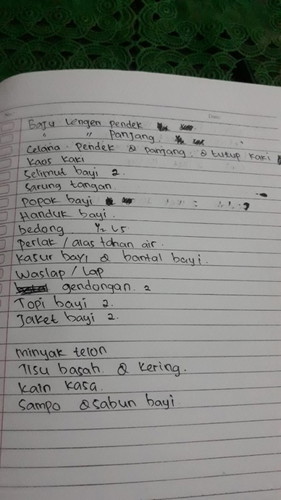 Baju lengen pendek
" " panjang
Celana pendek & panjang & tutup kaki
Kaos kaki
Selimut bayi 2.
Sarung tangan
Popok bayi
Handuk bayi.
bedong
Perlak / alas tahan air.
Kasur bayi & bantal bayi.
Waslap / Lap
gendongan 2
Topi bayi 2.
Jaket bayi 2.
minyak telon
Tisu basah & kering.
Kain kasa.
Sampo & sabun bayi